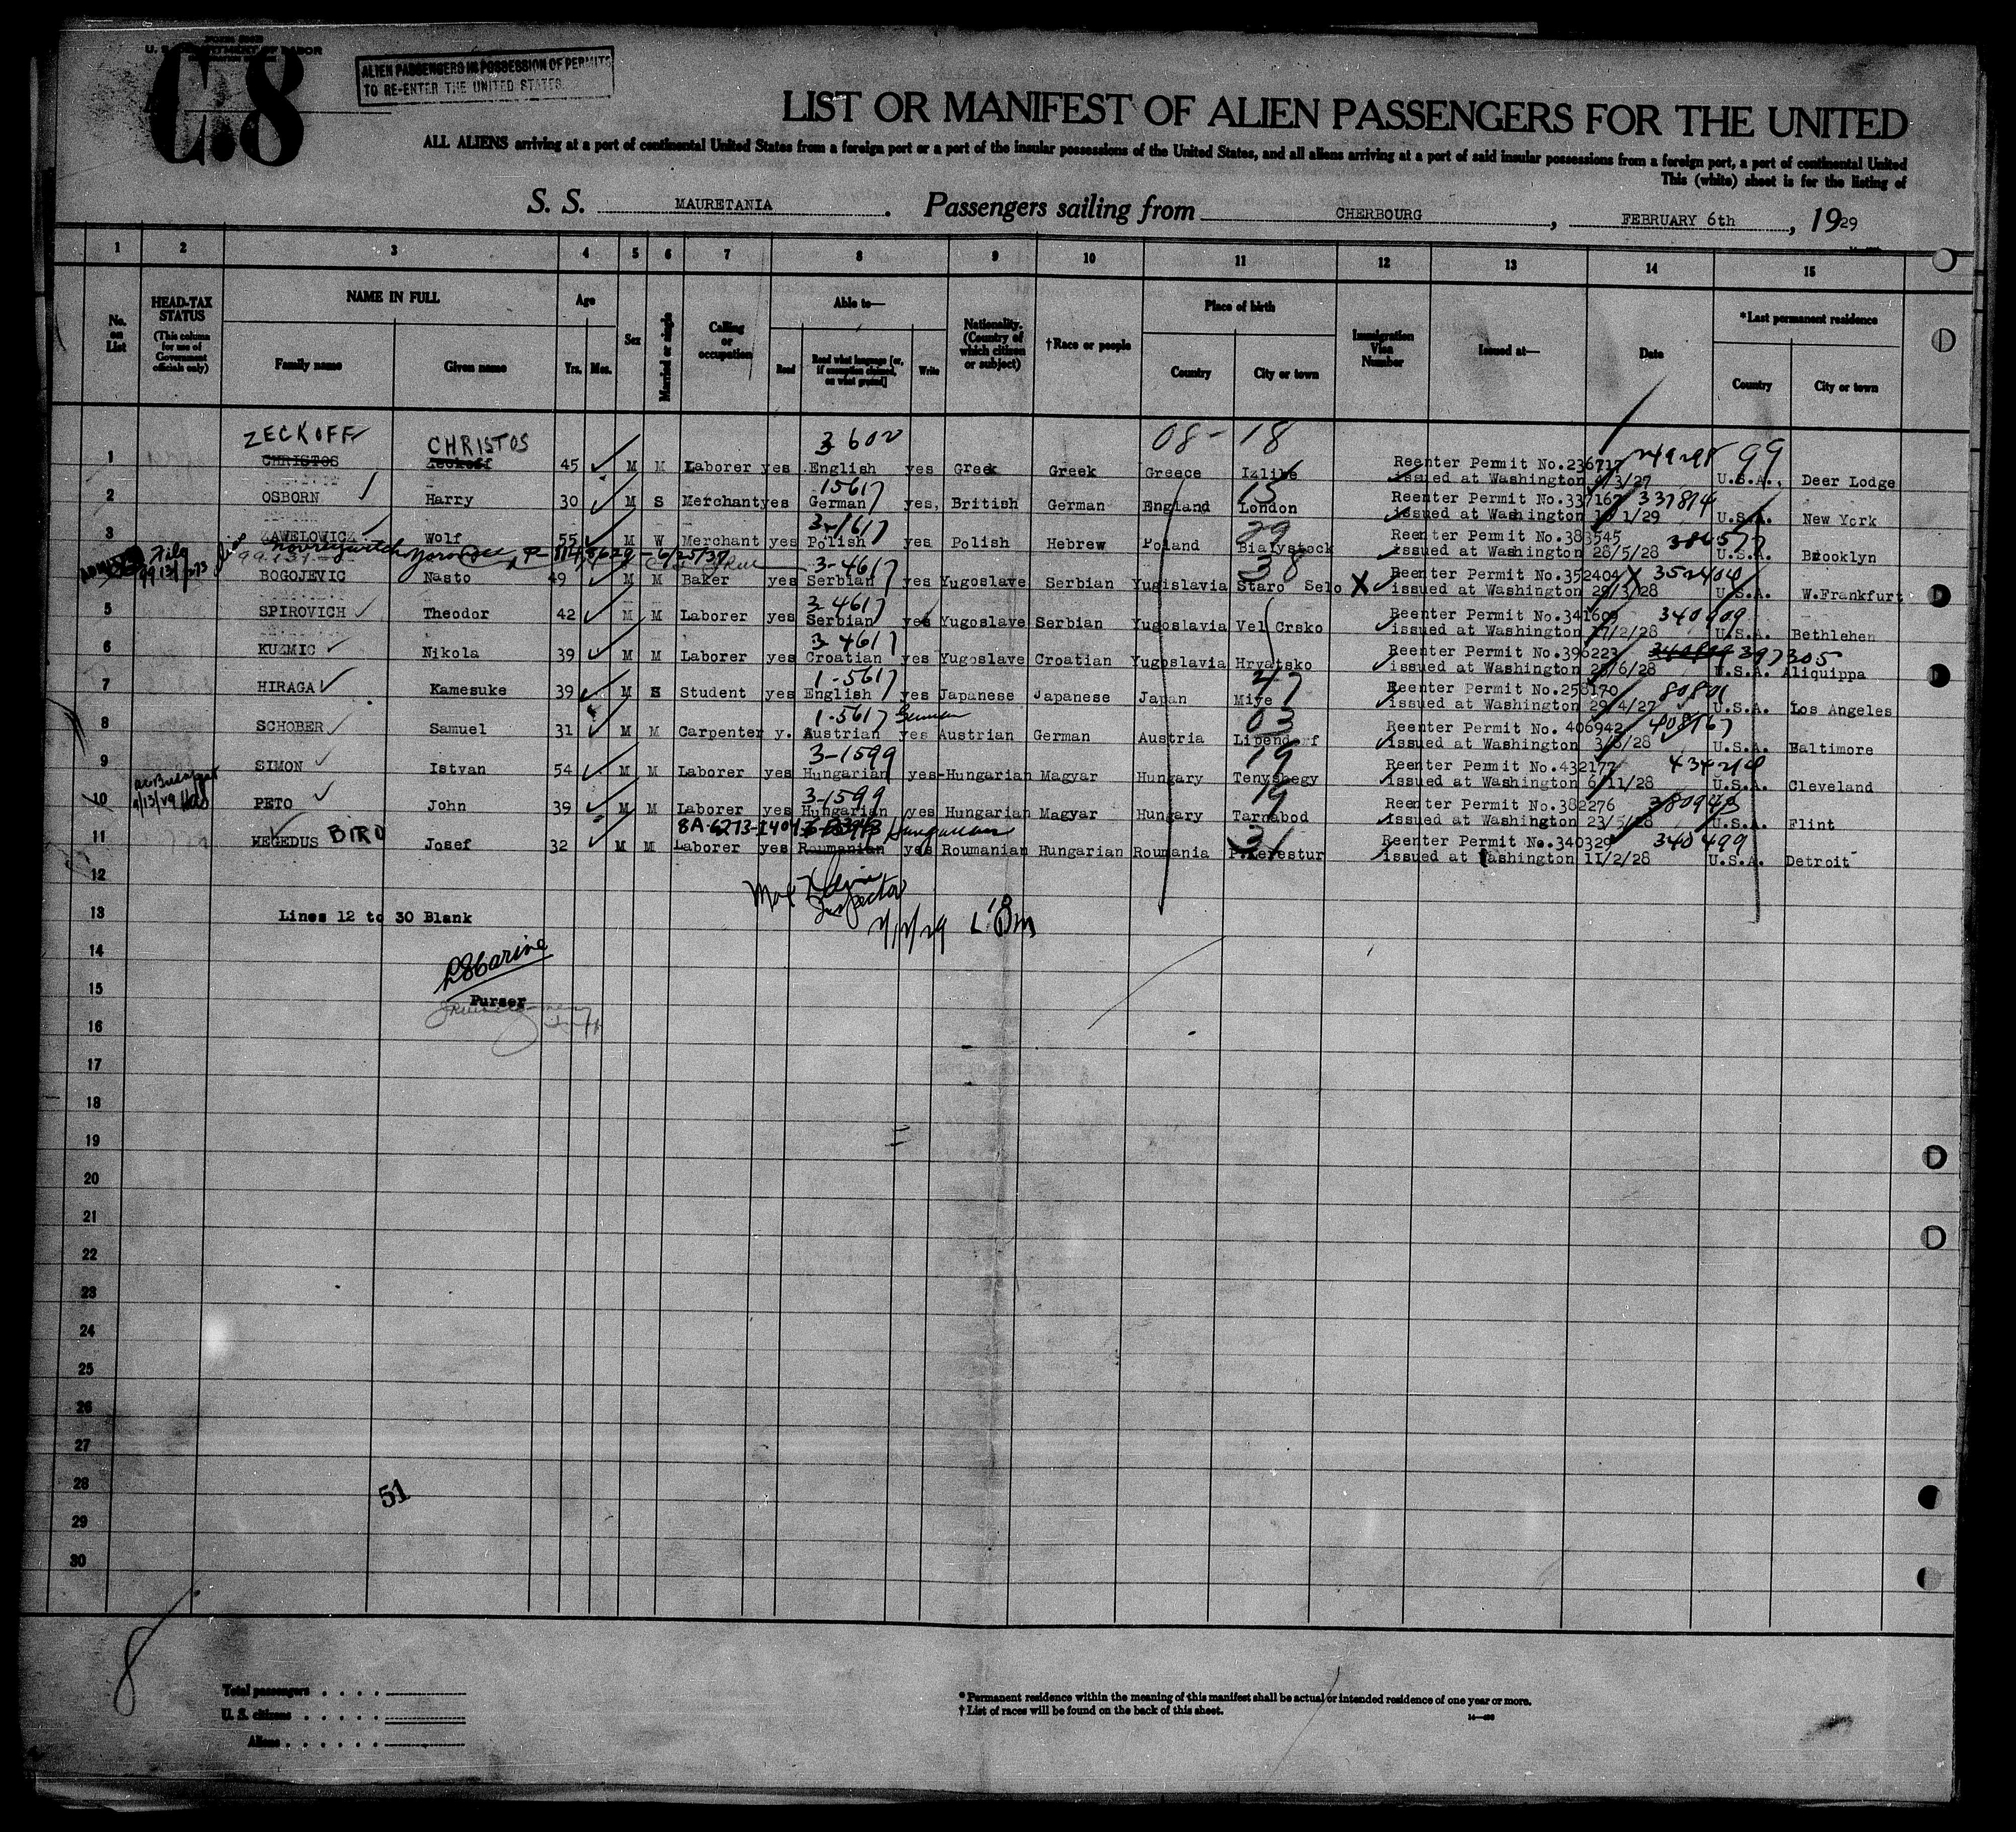 FORM 500B
U. S. DEPARTMENT OF LABOR
C.8
ALIEN PASSENGERS IN POSSESSION OF PERMITS
TO RE-ENTER THE UNITED STATES.
LIST OR MANIFEST OF ALIEN PASSENGERS FOR THE UNITED
ALL ALIENS arriving at a port of continental United States from a foreign port or a port of the insular possessions of the United States, and all aliens arriving at a port of said insular possessions from a foreign port, a port of continental United
This (white) sheet is for the listing of
S. S. MAURETANIA. Passengers sailing from CHERBOURG, FEBRUARY 6th, 1929
1 2 3 4 5 6 7 8 9 10 11 12 13 14 15
No. on List
HEAD-TAX STATUS (This column for use of Government officials only)
NAME IN FULL
Family name Given name
Age
Yrs. Mos.
Sex
Married or single
Calling or occupation
Able to—
Read Read what language [or, if exemption claimed, on what ground] Write
Nationality. (Country of which citizen or subject)
†Race or people
Place of birth
Country City or town
Immigration Visa Number
Issued at—
Date
*Last permanent residence
Country City or town
ZECKOFF CHRISTOS 3 600 08- 18 99
1 CHRISTOS Zeckoff 45 M M Laborer yes English yes Greek Greek Greece Izlibe Reenter Permit No.236717 issued at Washington /3/27 U.S.A., Deer Lodge
1561 15 337894
2 OSBORN Harry 30 M S Merchant yes German yes, British German England London Reenter Permit No.337167 issued at Washington 1/29 U.S.A. New York
3-161 29 38657
3 ZAWELOWICZ Wolf 55 M W Merchant yes Polish yes Polish Hebrew Poland Bialystock Reenter Permit No.383545 issued at Washington 28/5/28 U.S.A. Brooklyn
File 99131/273 6/25/37
3-461 38 X 352404
BOGOJEVIC Nasto 49 M M Baker yes Serbian yes Yugoslave Serbian Yugislavia Staro Selo X Reenter Permit No.352404 issued at Washington 29/3/28 U.S.A. W.Frankfurt
3-461 340909
5 SPIROVICH Theodor 42 M M Laborer yes Serbian yes Yugoslave Serbian Yugoslavia Vel Crsko Reenter Permit No.341609 issued at Washington 17/2/28 U.S.A. Bethlehen
3-461 397305
6 KUZMIC Nikola 39 M M Laborer yes Croatian yes Yugoslave Croatian Yugoslavia Hrvatsko Reenter Permit No.396223 issued at Washington 28/6/28 U.S.A. Aliquippa
1-561 47 80801
7 HIRAGA Kamesuke 39 M S Student yes English yes Japanese Japanese Japan Miye Reenter Permit No.258170 issued at Washington 29/4/27 U.S.A. Los Angeles
1-561 German 03 408167
8 SCHOBER Samuel 31 M M Carpenter y. Austrian yes Austrian German Austria Lipendorf Reenter Permit No. 406942 issued at Washington 3/8/28 U.S.A. Baltimore
3-1599 19 434210
9 SIMON Istvan 54 M M Laborer yes Hungarian yes-Hungarian Magyar Hungary Tenyshegy Reenter Permit No.432177 issued at Washington 6/11/28 U.S.A. Cleveland
3-1599 19 380943
10 PETO John 39 M M Laborer yes Hungarian yes Hungarian Magyar Hungary Tarnabod Reenter Permit No.382276 issued at Washington 23/5/28 U.S.A. Flint
BIRO 8A-6273-1404 Hungarian 31 340499
11 HEGEDUS Josef 32 M M Laborer yes Roumanian yes Roumanian Hungarian Roumania P.Kerestur Reenter Permit No.340329 issued at Washington 11/2/28 U.S.A. Detroit
12
Inspector
13 Lines 12 to 30 Blank
14
15
Purser
16
17
18
19
20
21
22
23
24
25
26
27
28
51
29
30
8
Total passengers . . . .
U. S. citizens . . . . .
Aliens . . . . . .
* Permanent residence within the meaning of this manifest shall be actual or intended residence of one year or more.
† List of races will be found on the back of this sheet.